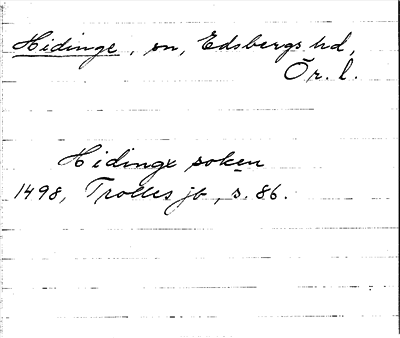 Hidinge, sn, Edsbergs hd,
Ör. l.
Hidinge soken
1498, Trolles jb, s. 86.